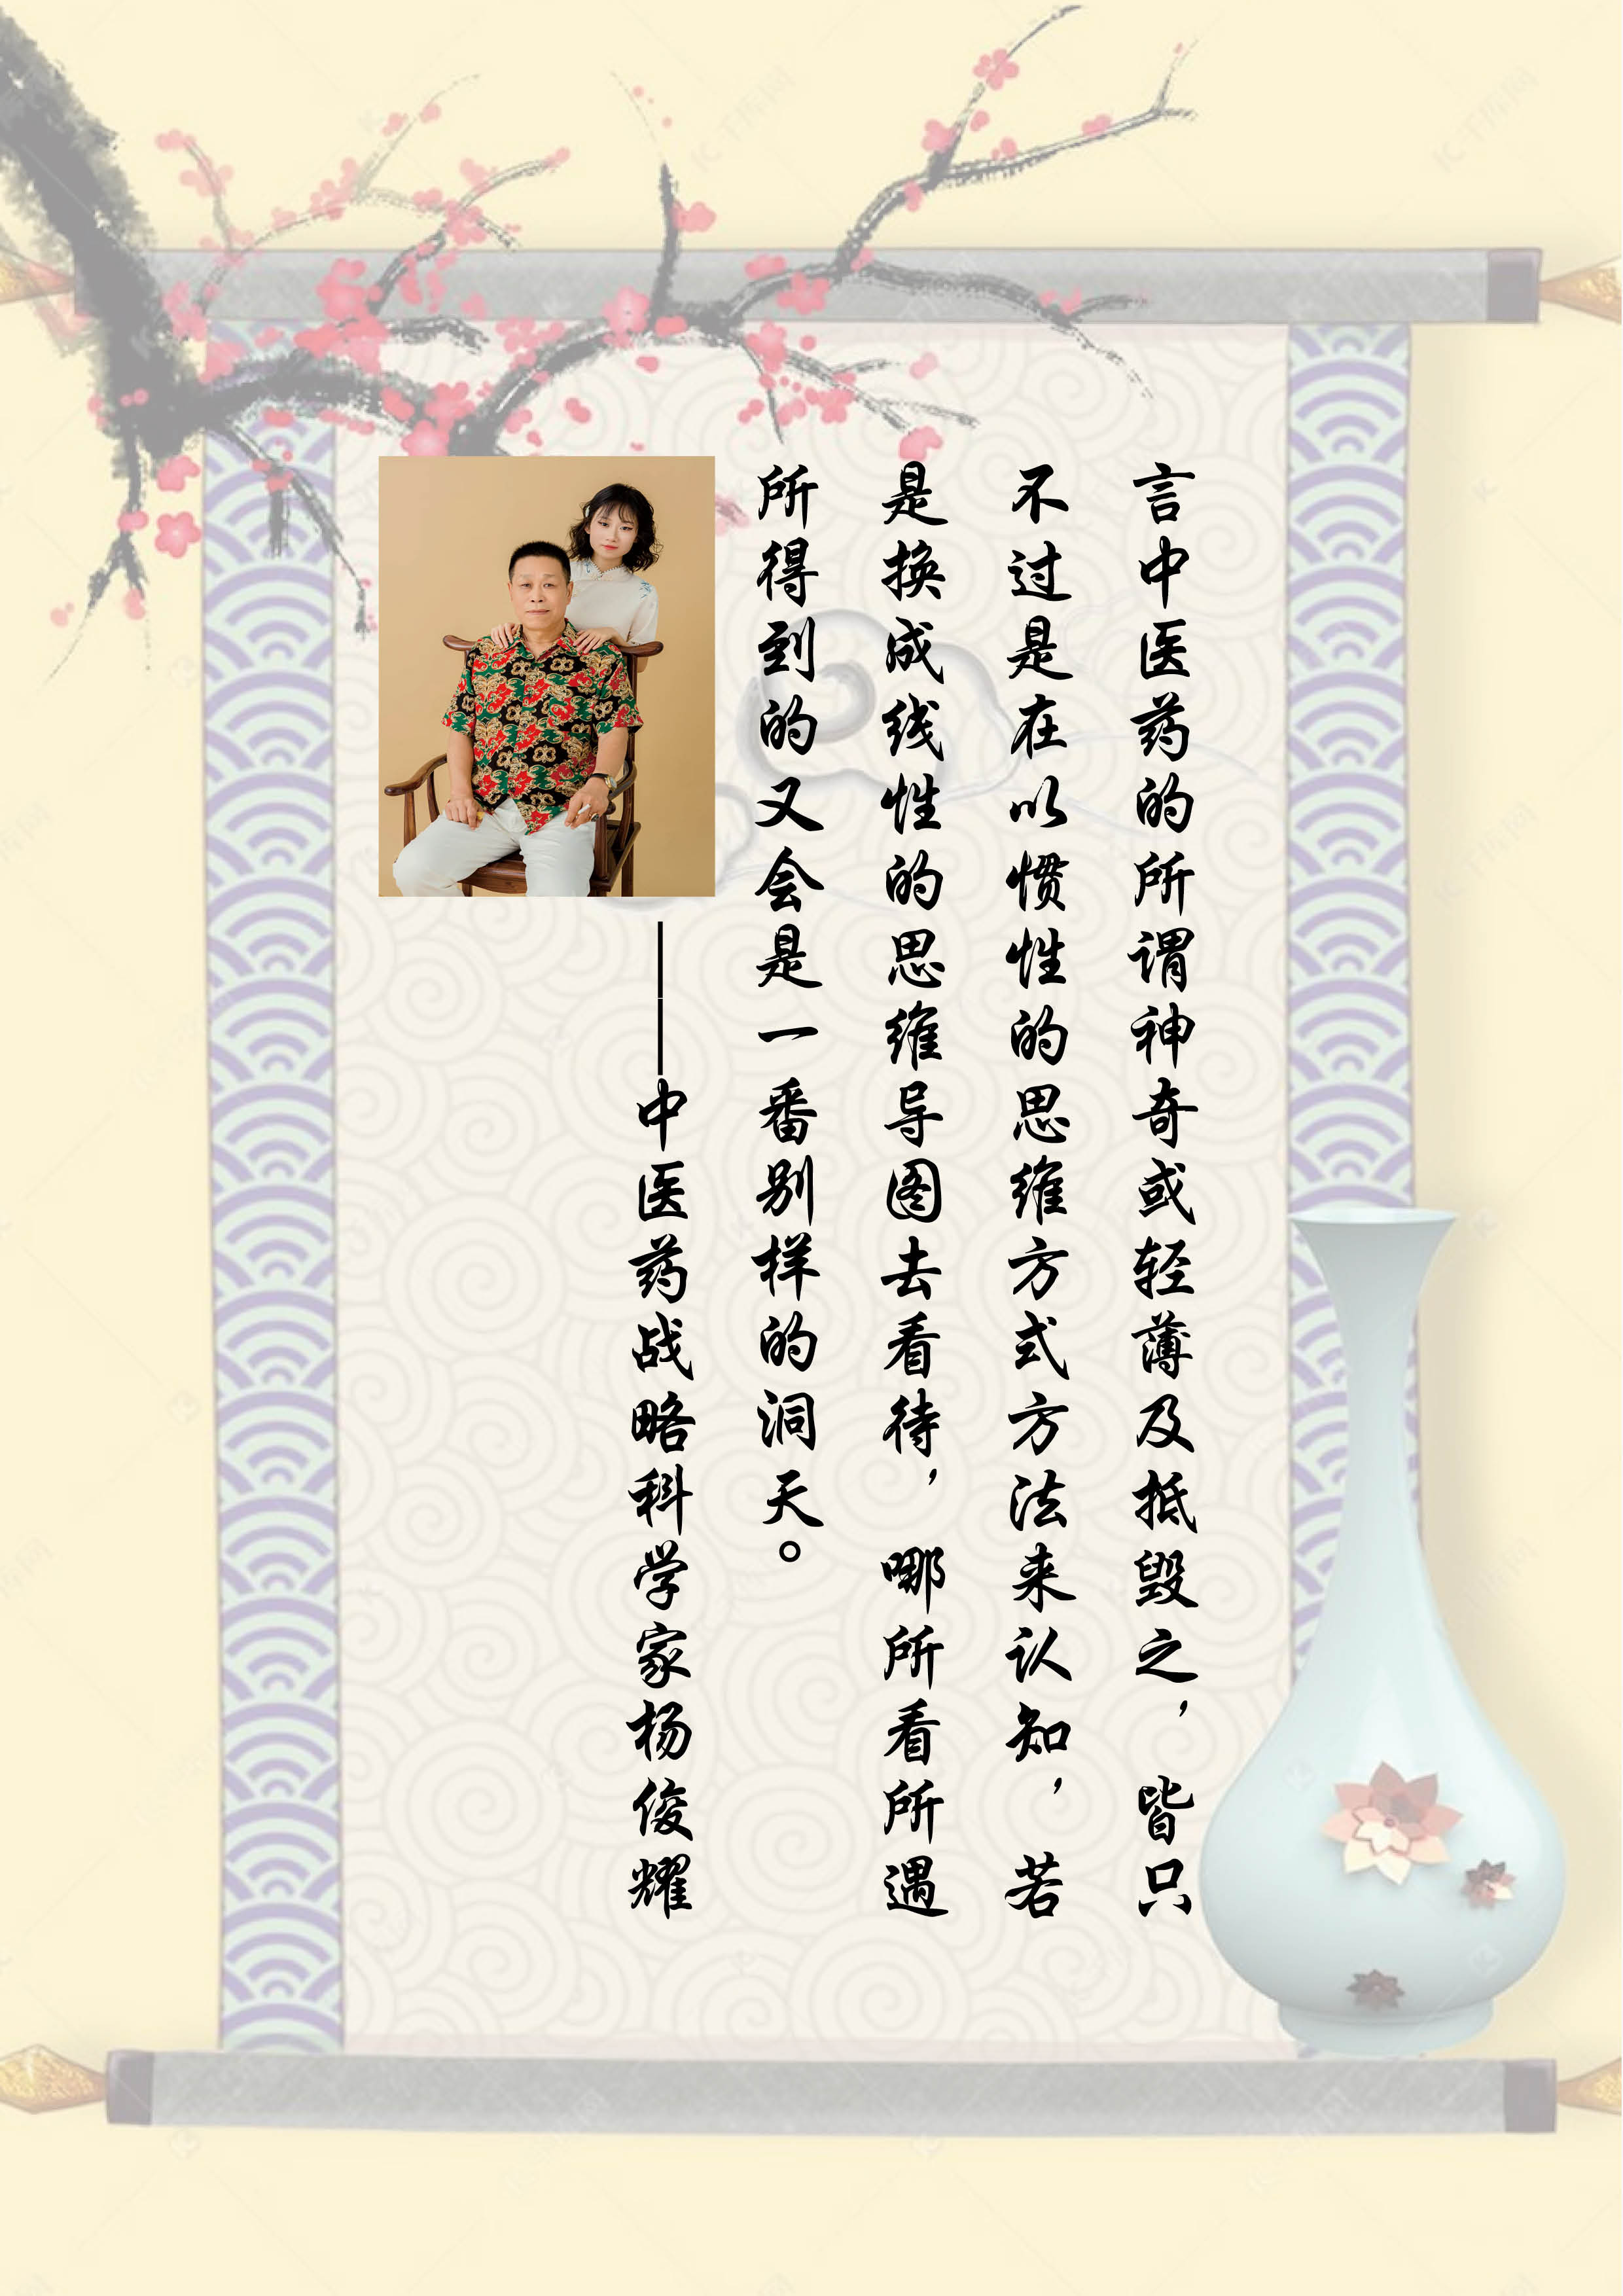 言中医药的所谓神奇或轻薄及抵毁之，皆只
不过是在以惯性的思维方式方法来认知，若
是换成线性的思维导图去看待，哪所看所遇
所得到的又会是一番别样的洞天。
——中医药战略科学家杨俊耀